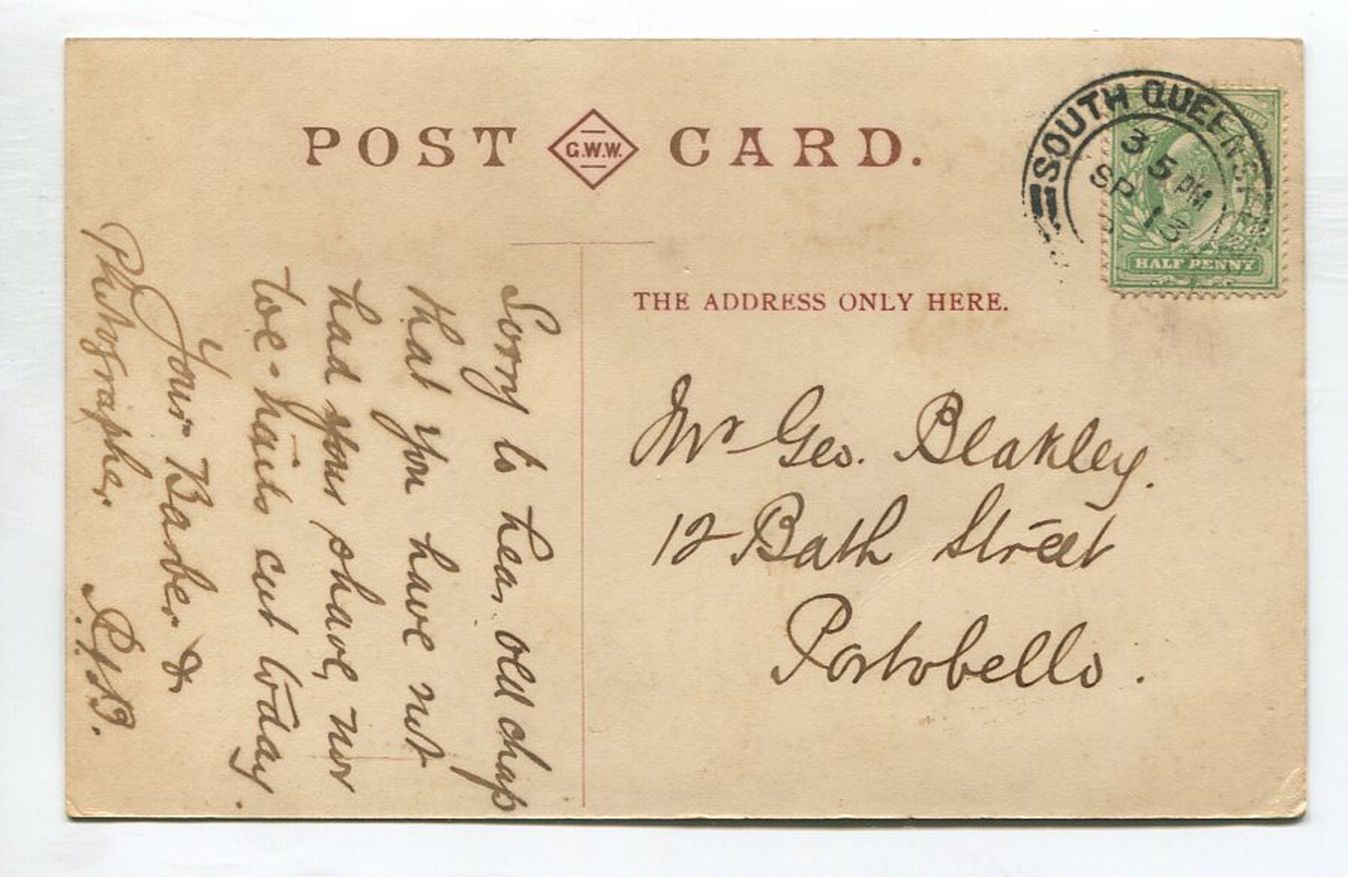 POST G.W.W. CARD.
SOUTH QUEENSFE
3 5 PM
SP 13
HALF PENNY
THE ADDRESS ONLY HERE.
Mr Geo. Blakley.
12 Bath Street
Portobello.
Sorry to hear old chap
that you have not
had your shave, nor
toe-hails cut today.
Your Barber &
Photographer